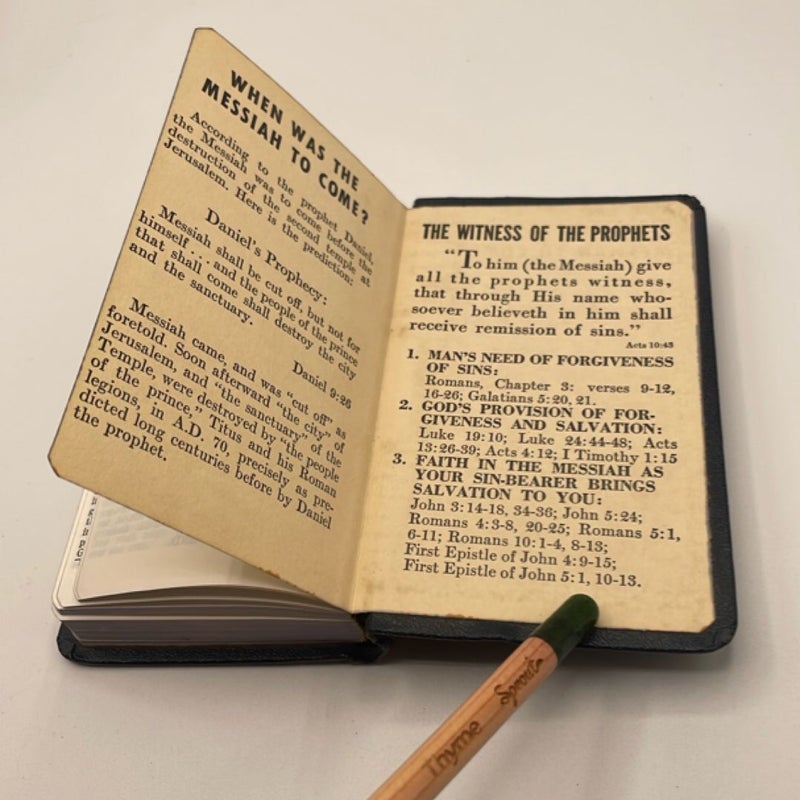 WHEN WAS THE
MESSIAH TO COME?
According to the prophet Daniel,
the Messiah was to come before the
destruction of the second temple at
Jerusalem. Here is the prediction:
Daniel's Prophecy:
Messiah shall be cut off, but not for
himself . . . and the people of the prince
that shall come shall destroy the city
and the sanctuary.
Daniel 9:26
Messiah came, and was "cut off" as
foretold. Soon afterward "the city" of
Jerusalem, and "the sanctuary" of the
Temple, were destroyed by "the people
of the prince," Titus and his Roman
legions, in A.D. 70, precisely as pre-
dicted long centuries before by Daniel
the prophet.
THE WITNESS OF THE PROPHETS
"To him (the Messiah) give
all the prophets witness,
that through His name who-
soever believeth in him shall
receive remission of sins."
Acts 10:43
1. MAN'S NEED OF FORGIVENESS
OF SINS:
Romans, Chapter 3: verses 9-12,
16-26; Galatians 5:20, 21.
2. GOD'S PROVISION OF FOR-
GIVENESS AND SALVATION:
Luke 19:10; Luke 24:44-48; Acts
13:26-39; Acts 4:12; I Timothy 1:15
3. FAITH IN THE MESSIAH AS
YOUR SIN-BEARER BRINGS
SALVATION TO YOU:
John 3:14-18, 34-36; John 5:24;
Romans 4:3-8, 20-25; Romans 5:1,
6-11; Romans 10:1-4, 8-13;
First Epistle of John 4:9-15;
First Epistle of John 5:1, 10-13.
Thyme Sprout